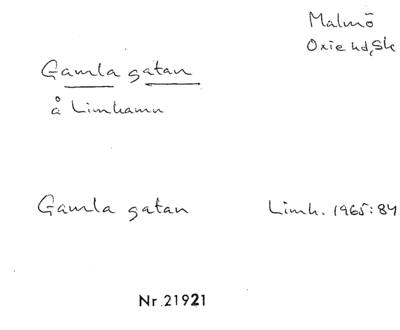 Malmö
Oxie hd, Sk
Gamla gatan
å Limhamn
Gamla gatan Limh. 1965:84
Nr.21921